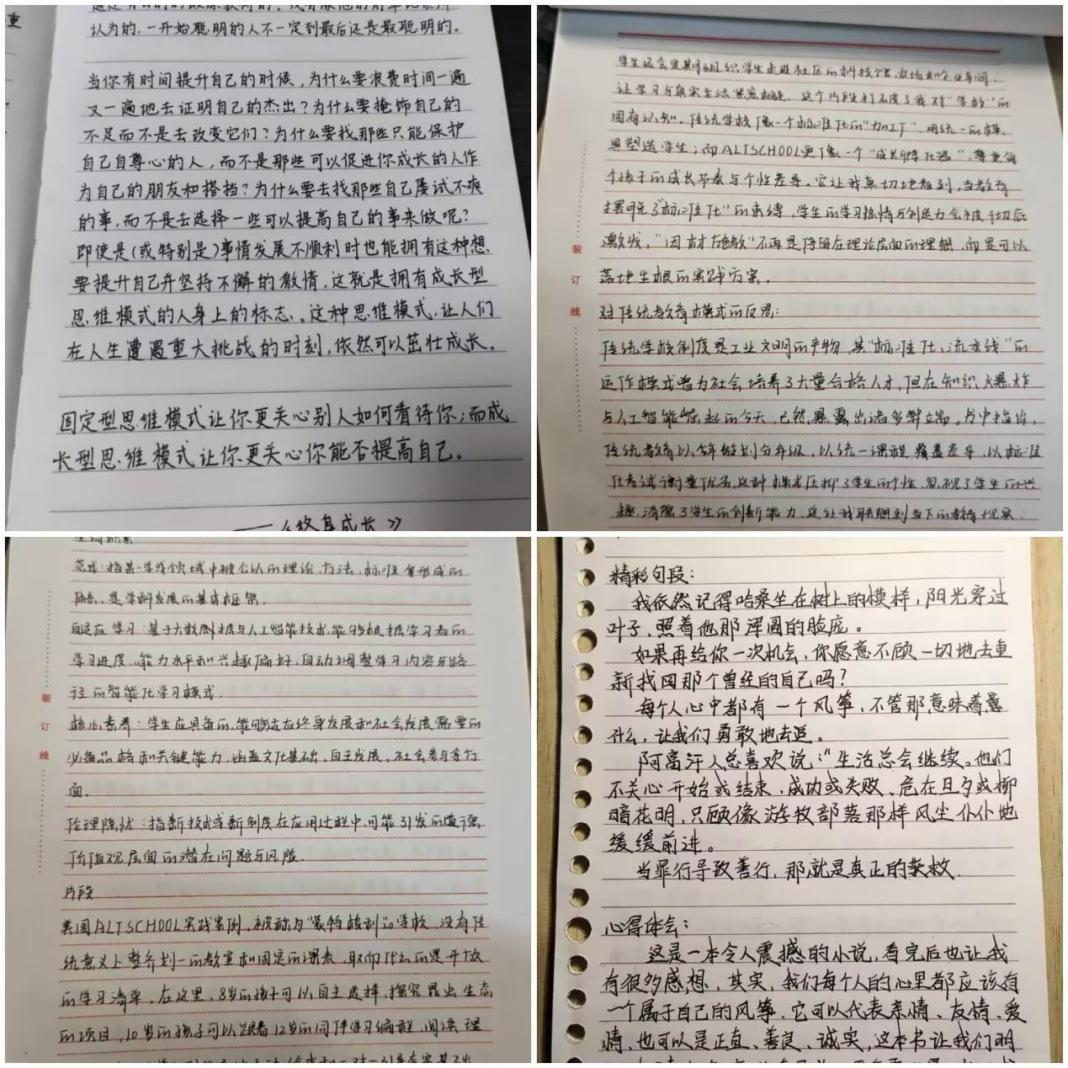 重
认为的，一开始聪明的人不一定到最后还是最聪明的。
当你有时间提升自己的时候，为什么要浪费时间一遍
又一遍地去证明自己的杰出？为什么要掩饰自己的
不足而不是去改变它们？为什么要找那些只能保护
自己自尊心的人，而不是那些可以促进你成长的人作
为自己的朋友和搭档？为什么要去找那些自己屡试不爽
的事，而不是去选择一些可以提高自己的事来做呢？
即使是（或特别是）事情发展不顺利时也能拥有这种想
要提升自己并坚持不懈的激情，这就是拥有成长型
思维模式的人身上的标志。这种思维模式，让人们
在人生遭遇重大挑战的时刻，依然可以茁壮成长。
固定型思维模式让你更关心别人如何看待你；而成
长型思维模式让你更关心你能否提高自己。
——《终身成长》
学生还会定期组织学生走进社区的科技馆、农场和企业车间，
让学习与真实生活紧密相连。这个片段打破了我对“学校”的
固有认知。传统学校像一个标准化的“加工厂”，用统一的模
具塑造学生；而ALTSCHOOL更像一个“成长孵化器”，尊重每
个孩子的成长节奏与个性差异。它让我真切地看到，当教育
摆脱了“标准化”的束缚，学生的学习热情与创造力会被
激发，“因材施教”不再是停留在理论层面的理想，而是可以
落地生根的实践方案。
对传统教育模式的反思：
传统学校制度是工业文明的产物，其“标准化、流水线”的
运作模式曾为社会培养了大量合格人才，但在知识爆炸
与人工智能崛起的今天，已然暴露出诸多弊端。书中指出，
传统教育以年龄划分年级，以统一课程覆盖差异，以标准
化考试衡量优劣，这种模式压抑了学生的个性，忽视了学生的兴
趣，消磨了学生的创新能力。这让我联想到当下的教育现实：
装
订
线
范式：指某一学科领域中被公认的理论、方法、标准等形成的
体系，是学科发展的基本框架。
自适应学习：基于大数据与人工智能技术，能够根据学习者的
学习进度、能力水平和兴趣偏好，自动调整学习内容与路
径的智能化学习模式。
核心素养：学生应具备的，能够适应终身发展和社会发展需要的
必备品格和关键能力，涵盖文化基础、自主发展、社会参与等方
面。
伦理隐忧：指新技术或新制度在应用过程中，可能引发的道德、
价值观层面的潜在问题与风险。
片段
美国ALTSCHOOL实践案例，被称为“最特立的学校”，没有传
统意义上整齐划一的教室和固定的课表，取而代之的是开放
的学习清单。在这里，8岁的孩子可以自主选择，探究昆虫生态
的项目，10岁的孩子可以跟着12岁的同伴学习编程，阅读、理
装
订
线
精彩句段：
我依然记得哈桑坐在树上的模样，阳光穿过
叶子，照着他那浑圆的脸庞。
如果再给你一次机会，你愿意不顾一切地去重
新找回那个曾经的自己吗？
每个人心中都有一个风筝，不管那意味着
什么，让我们勇敢地去追。
阿富汗人总喜欢说：“生活总会继续。他们
不关心开始或结束，成功或失败、危在旦夕或柳
暗花明，只顾像游牧部落那样风尘仆仆地
缓缓前进。
当罪行导致善行，那就是真正的救赎
心得体会：
这是一本令人震撼的小说，看完后也让我
有很多感想，其实，我们每个人的心里都应该有
一个属于自己的风筝，它可以代表亲情、友情、爱
情，也可以是正直、善良、诚实，这本书让我们明